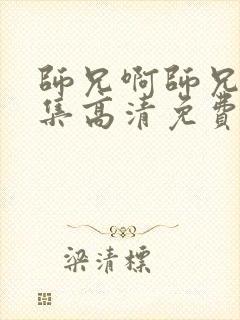 師兄啊師兄
集高清免費
梁清標